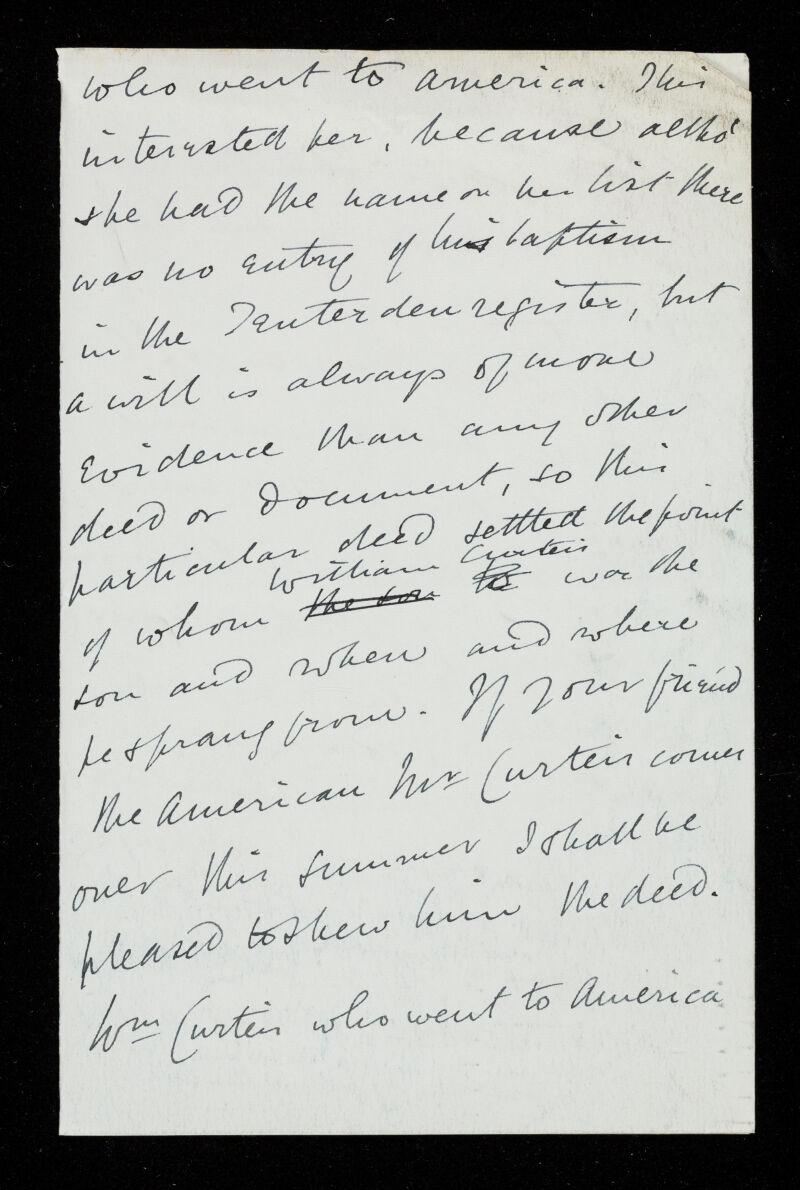 who went to America. This
interested her, because altho'
she had the name on her list there
was no entry of his baptism
in the Tenterden register, but
a will is always of more
evidence than any other
deed or document, so this
particular deed settled the point
William Curteis
of whom the son he was the
son and when and where
he sprang from. If your friend
the American Mr Curteis comes
over this summer I shall be
pleased to shew him the deed.
Wm Curteis who went to America